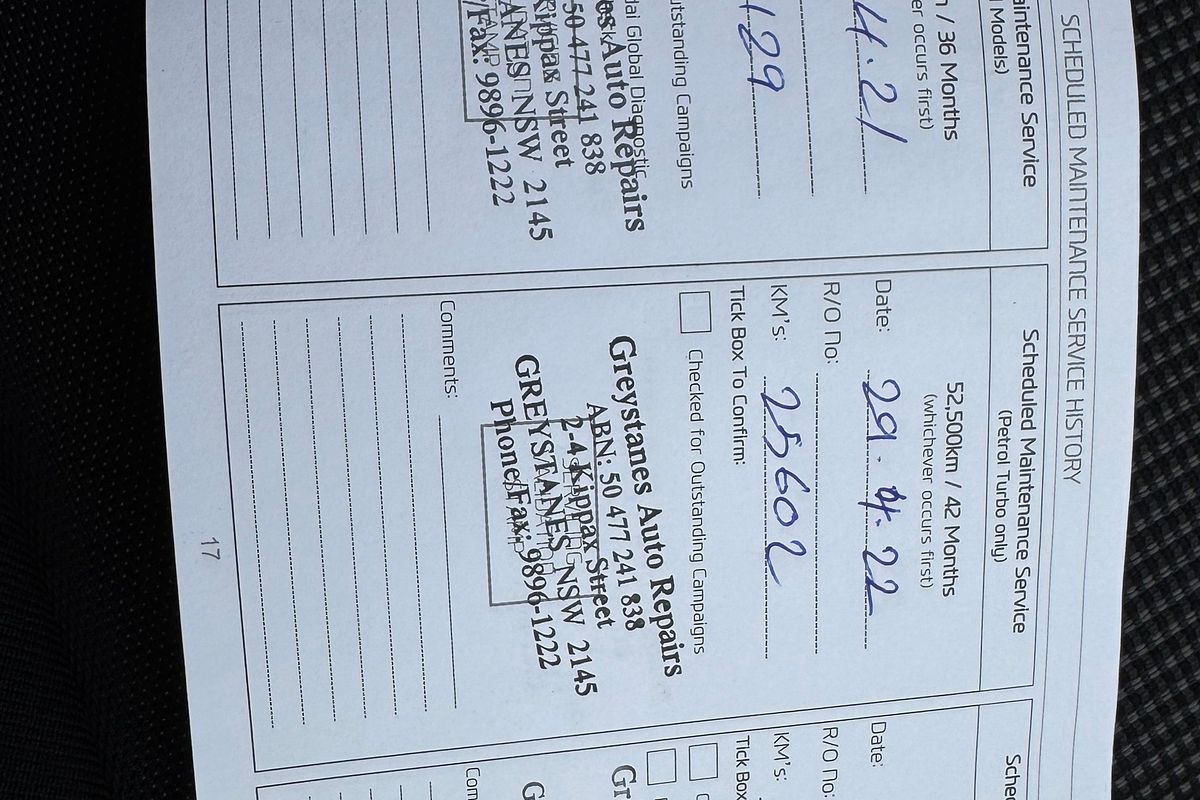 SCHEDULED MAINTENANCE SERVICE HISTORY
aintenance Service
Models)
/ 36 Months
er occurs first)
4.21
129
utstanding Campaigns
dai Global Diagnostic
es Auto Repairs
50 477 241 838
Kippax Street
ANES NSW 2145
/Fax: 9896-1222
Scheduled Maintenance Service
(Petrol Turbo only)
52,500km / 42 Months
(whichever occurs first)
Date: 29.4.22
R/O No:
KM's: 25602
Tick Box To Confirm:
Checked for Outstanding Campaigns
Greystanes Auto Repairs
ABN: 50 477 241 838
2-4 Kippax Street
GREYSTANES NSW 2145
Phone/Fax: 9896-1222
Comments:
17
Sched
Date:
R/O No:
KM's:
Tick Box
C
Gr
G
Com